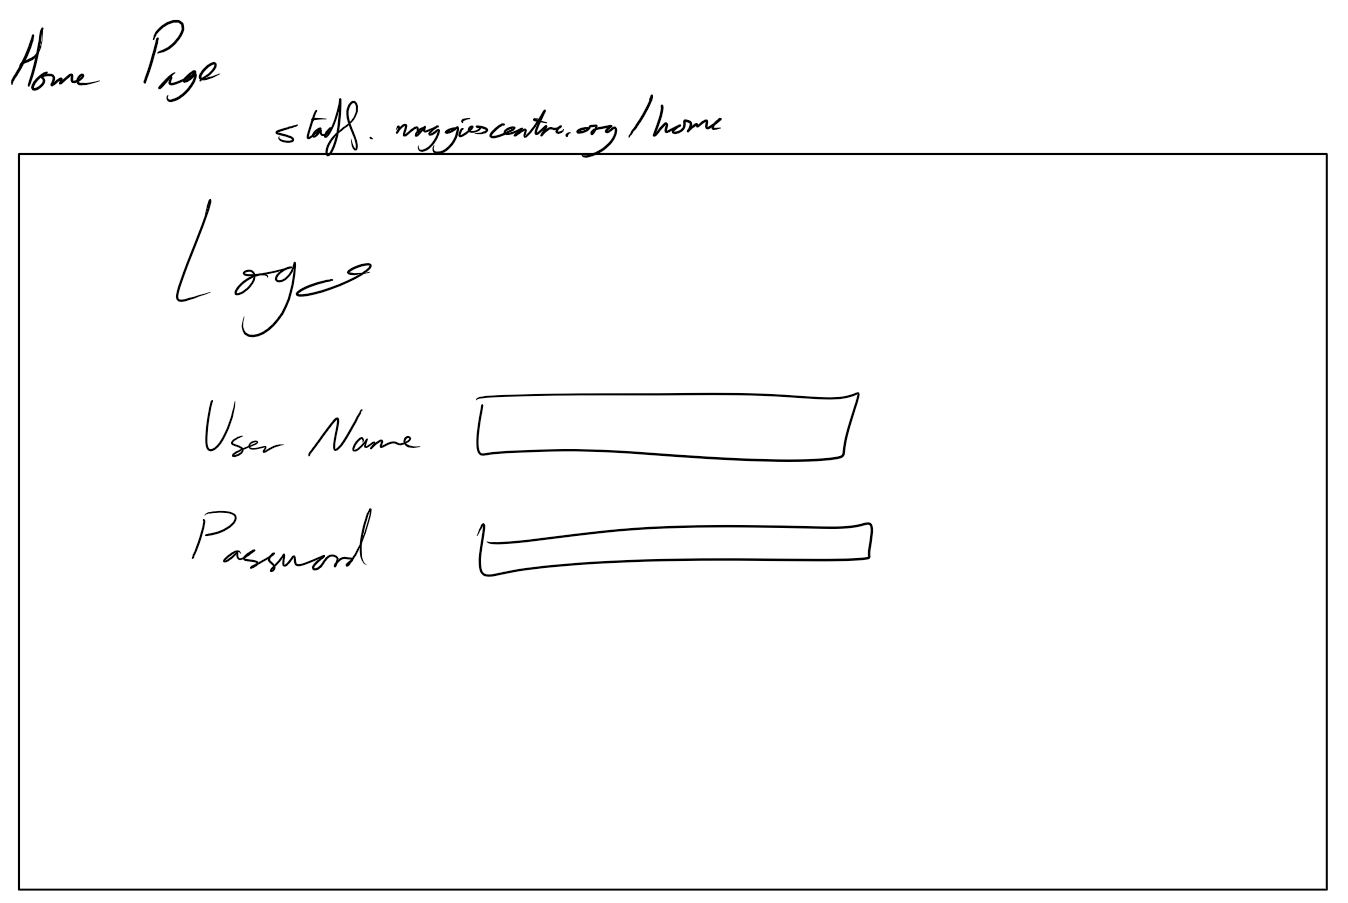 Home Page
staff.maggiescentre.org/home
Logo
User Name
Password